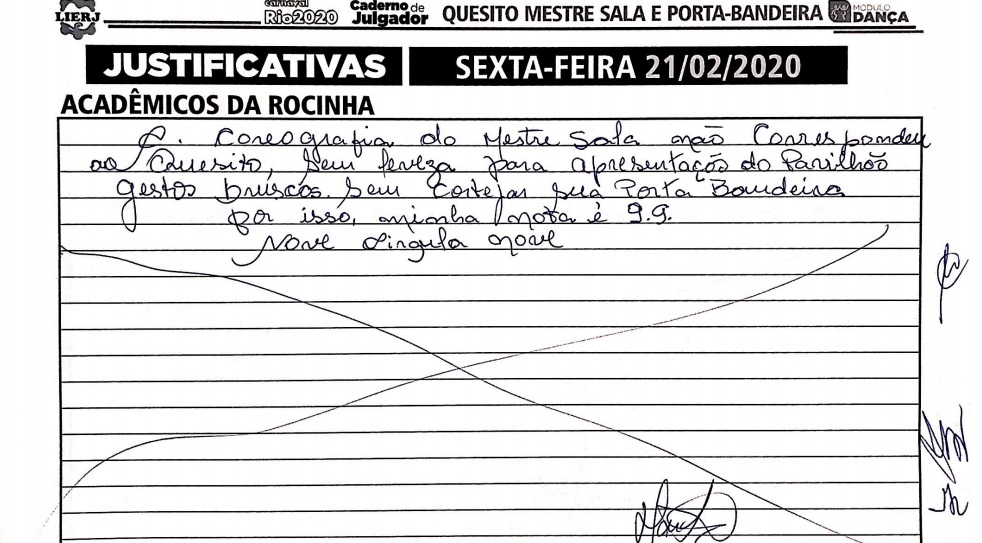 LIERJ carnaval Rio2020 Caderno de Julgador QUESITO MESTRE SALA E PORTA-BANDEIRA MÓDULO DANÇA
JUSTIFICATIVAS SEXTA-FEIRA 21/02/2020
ACADÊMICOS DA ROCINHA
A. Coreografia do Mestre Sala não Correspondeu
ao Quesito, sem leveza para apresentação do Pavilhão
gestos bruscos. Sem Cortejar sua Porta Bandeira
por isso, minha nota é 9.9.
Nove vírgula nove